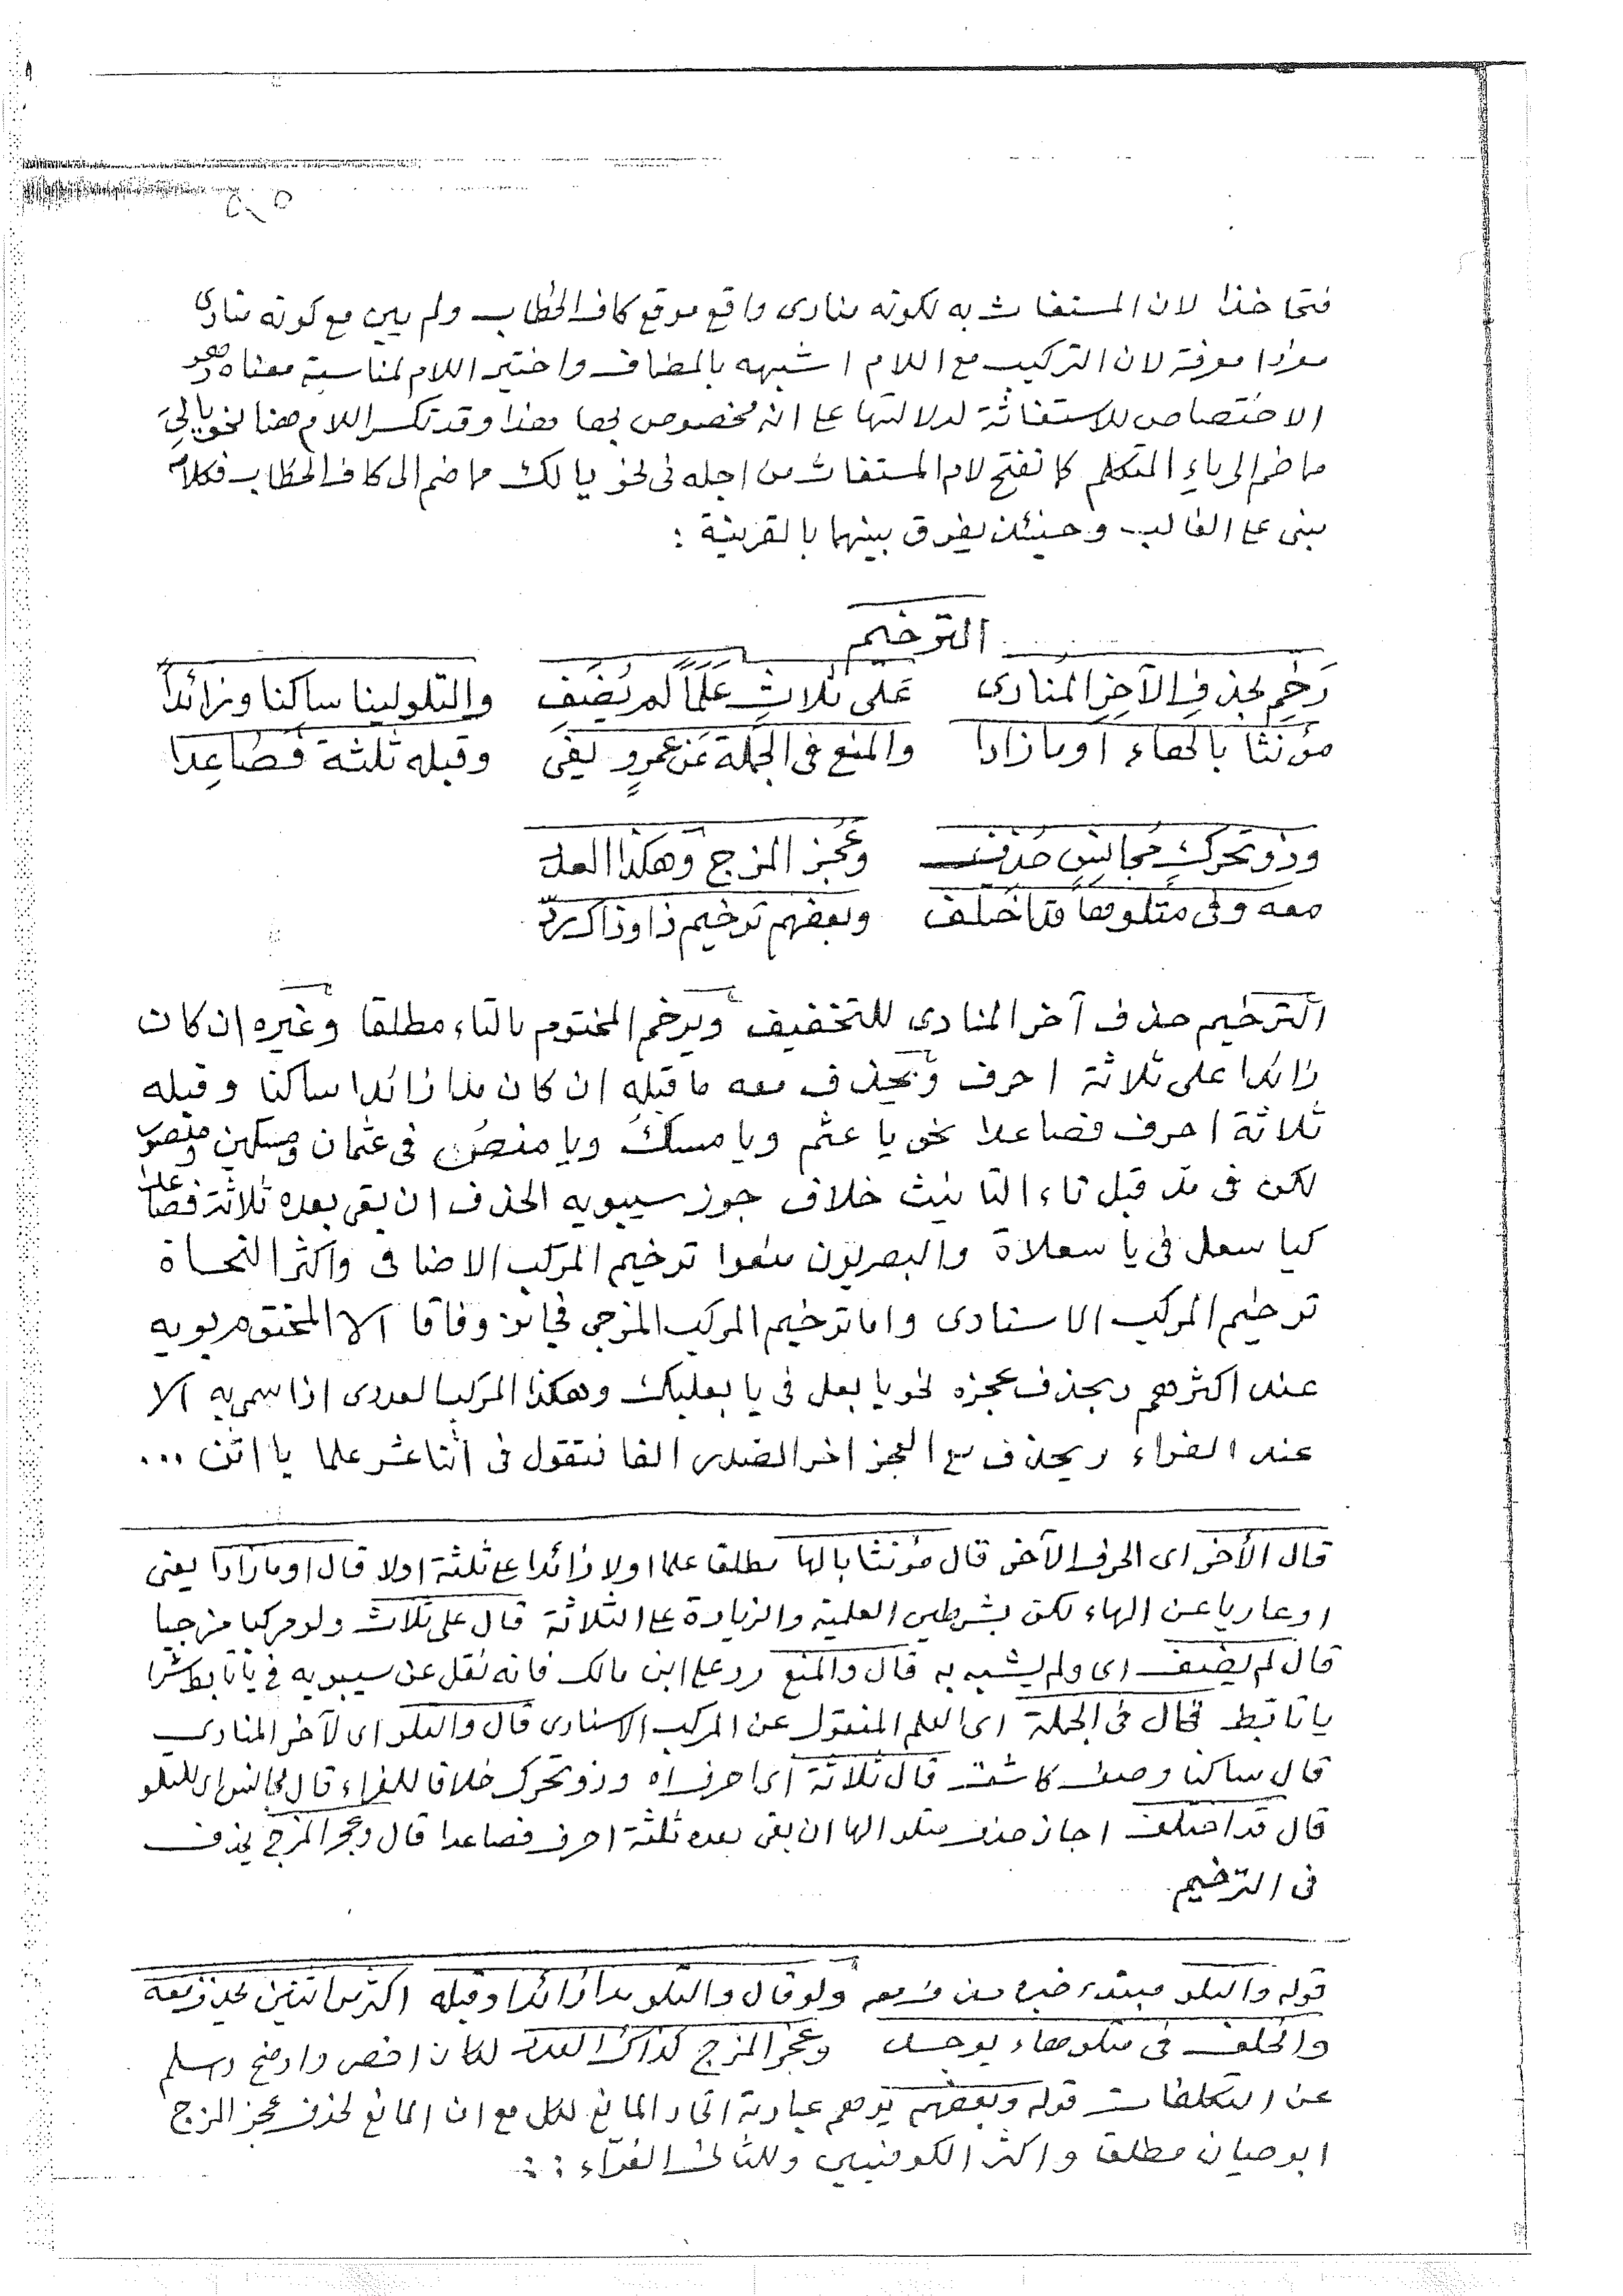 فتحا خذا لان المستغاث به لكونه منادى واقع موقع كاف الخطاب ولم يبن مع كونه منادى
مفردا معرفة لان التركيب مع اللام اشبهه بالمضاف واختير اللام لمناسبة معناه وهو
الاختصاص للاستغاثة لدلالتها على انه مخصوص بها هذا وقد تكسر اللام هنا نحو يا لي
ما ضم الى ياء المتكلم كما تفتح لام المستغاث من اجله في نحو يا لك ما ضم الى كاف الخطاب فكلامه
مبنى على الغالب وحينئذ يفرق بينهما بالقرينة :
الترخيم
رَخِّم بحذفِ الآخِرِ المنادى عَلى ثلاثٍ عَلَمًا لم يُضَف والتلو لينا ساكنا وزائداً
مؤنثا بالهاء اوما زادا والمنع في الجملة عَن عمرٍو يفى وقبله ثلثة فصاعِدا
وذو تحركٍ مُجانِسٍ حُذفت وعَجُز المزج وهكذا العدد
معه وفى متلوها قد اختُلف وبعضهم ترخيم ذا وذاك ردّ
الترخيم حذف آخر المنادى للتخفيف ويرخم المختوم بالتاء مطلقا وغيره ان كان
زائدا على ثلاثة احرف ويحذف معه ما قبله ان كان مدا زائدا ساكنا وقبله
ثلاثة احرف فصاعدا نحو يا عثم ويا مسك ويا منص في عثمان ومسكين ومنصور
لكن في مد قبل تاء التانيث خلاف جوز سيبويه الحذف ان بقى بعده ثلاثة فصاعدا
كيا سعل في يا سعلاة والبصريون منعوا ترخيم المركب الاضافى واكثر النحاة
ترخيم المركب الاسنادى واما ترخيم المركب المزجى فجائز وفاقا الا المختوم بويه
عند اكثرهم ويحذف عجزه نحو يا بعل في يا بعلبك وهكذا المركب العددى اذا سمى به الا
عند الفراء ويحذف مع العجز اخر الصدر الفا فتقول في اثنا عشر علما يا اثن ...
قال الأخر اى الحرف الآخر قال مؤنثا بالها مطلقا علما اولا زائدا على ثلثة اولا قال اوما زادا يعنى
اوعاريا عن الهاء لكن بشرطين العلمية والزيادة على الثلاثة قال على ثلاث ولو مركبا مزجيا
قال لم يضف اى ولم يشبه به قال والمنع رد على ابن مالك فانه نقل عن سيبويه في يا تابط شرا
يا تابط قال في الجملة اى العلم المنقول عن المركب الاسنادى قال والتلو اى لآخر المنادى
قال ساكنا وصف كاشف قال ثلاثة اى احرف اه وذو تحرك خلافا للفراء قال مجانس اى للتلو
قال قد اختلف اجاز حذف متلو الها ان بقى بعده ثلثة احرف فصاعدا قال وعجز المزج يحذف
في الترخيم
قوله والتلو مبتدء خبره حذف معه ولو قال والتلو مدا زائدا وقبله اكثر من اثنين يحذف معه
والخلف في متلوها يوجد وعجز المزج كذاك العدد لكان اخصر واوضح وسلم
عن التكلفات قوله وبعضهم يوهم عبارته اتحاد المانع للكل مع ان المانع لحذف عجز المزج
ابو حيان مطلقا واكثر الكوفيين وللثانى الفراء :